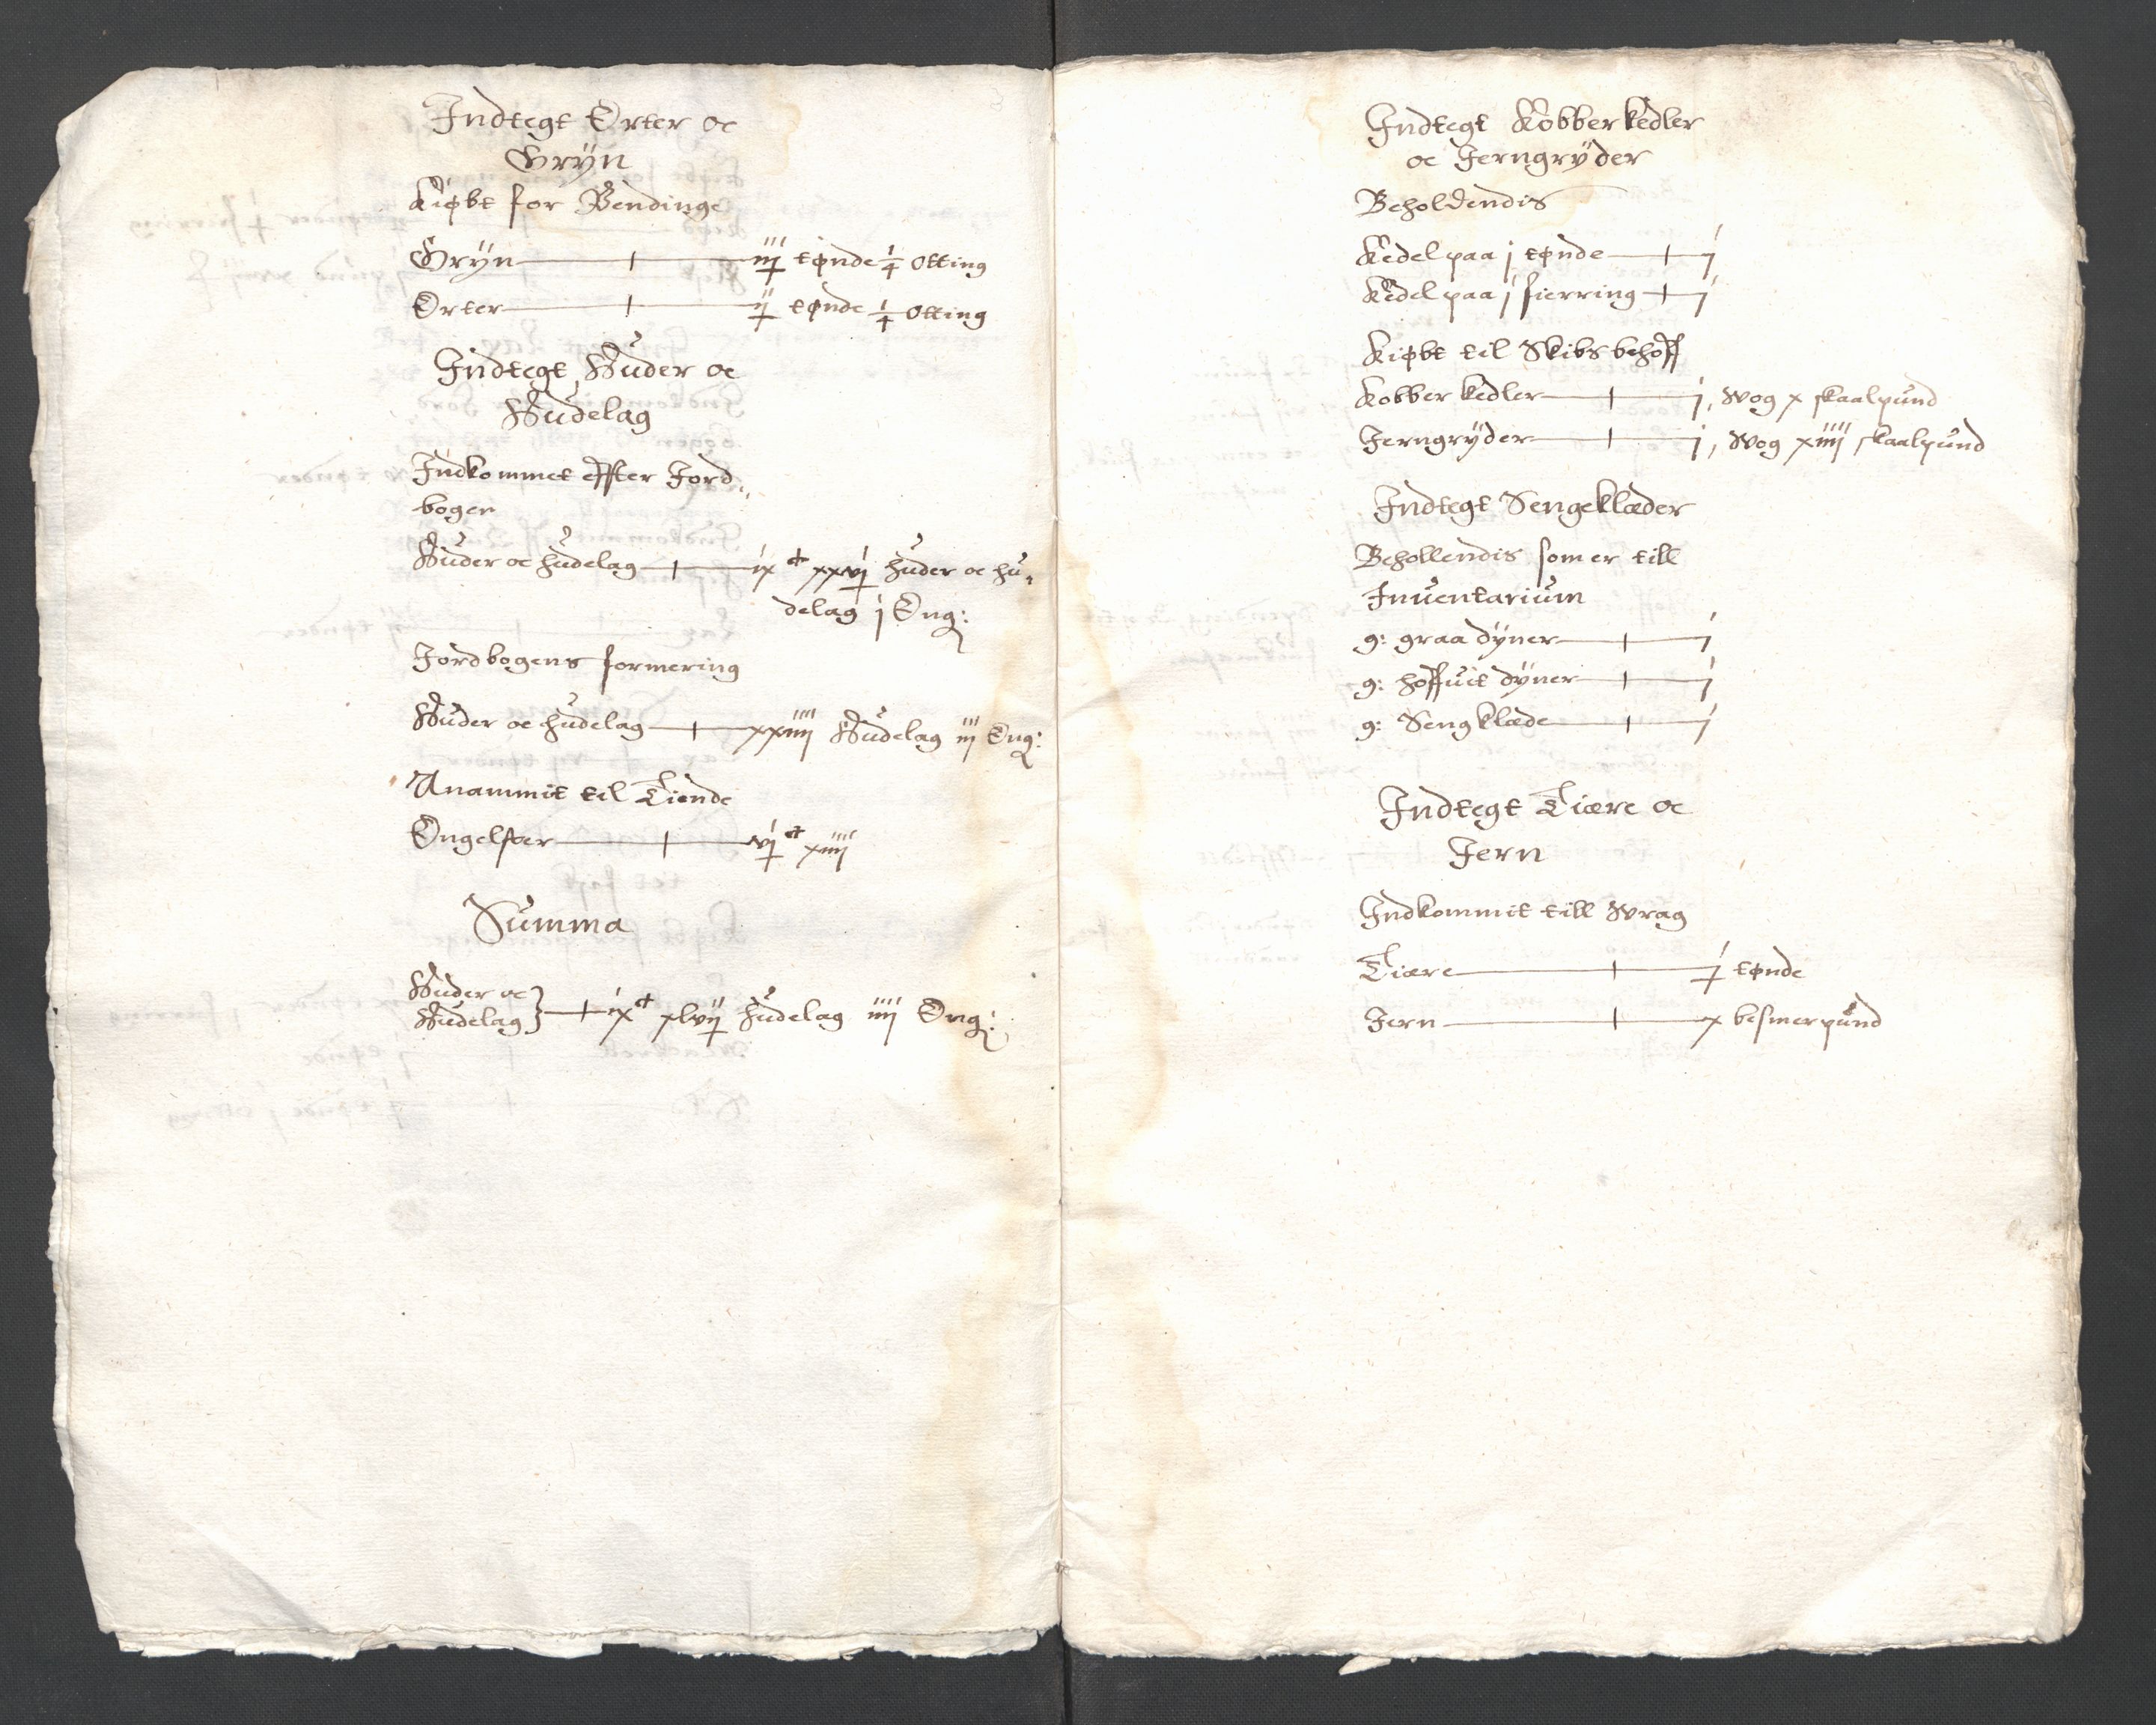 Indtegt Erter oc
Gryn
Kiøbt for Pendinge
Gryn — iij tønde ¼ otting
Erter — ij tønde ¼ otting
Indtegt Huder oc
Hudelag
Indkommet effter Jord„
bogen
Huder oc hudelag — ix ct xxvj huder oc hu„
delag j Eng:
Jordbogens formering
Huder oc hudelag — xxiiij Hudelag iij Eng:
Anammit til Tiende
Engelster — vj ct xiiij
Summa
Huder oc
Hudelag} — ix ct xlvij hudelag iiij Eng:
Indtegt Kobberkedler
oc Jerngryder
Beholdendis
Kedel paa j tønde — j
Kedel paa j fierring — j
Kiøbt til Skibs behoff
Kobber kedler — j, wog x skaalpund
Jerngryder — j, wog xiiij skaalpund
Indtegt Sengeklæder
Behollendis som er till
Inuentarium
g: graa dyner — j
g: hoffuit dyner — j
g: Sengklæde — j
Indtegt Tiære oc
Jern
Indkommit till wrag
Tiære — j tønde
Jern — x besmerpund